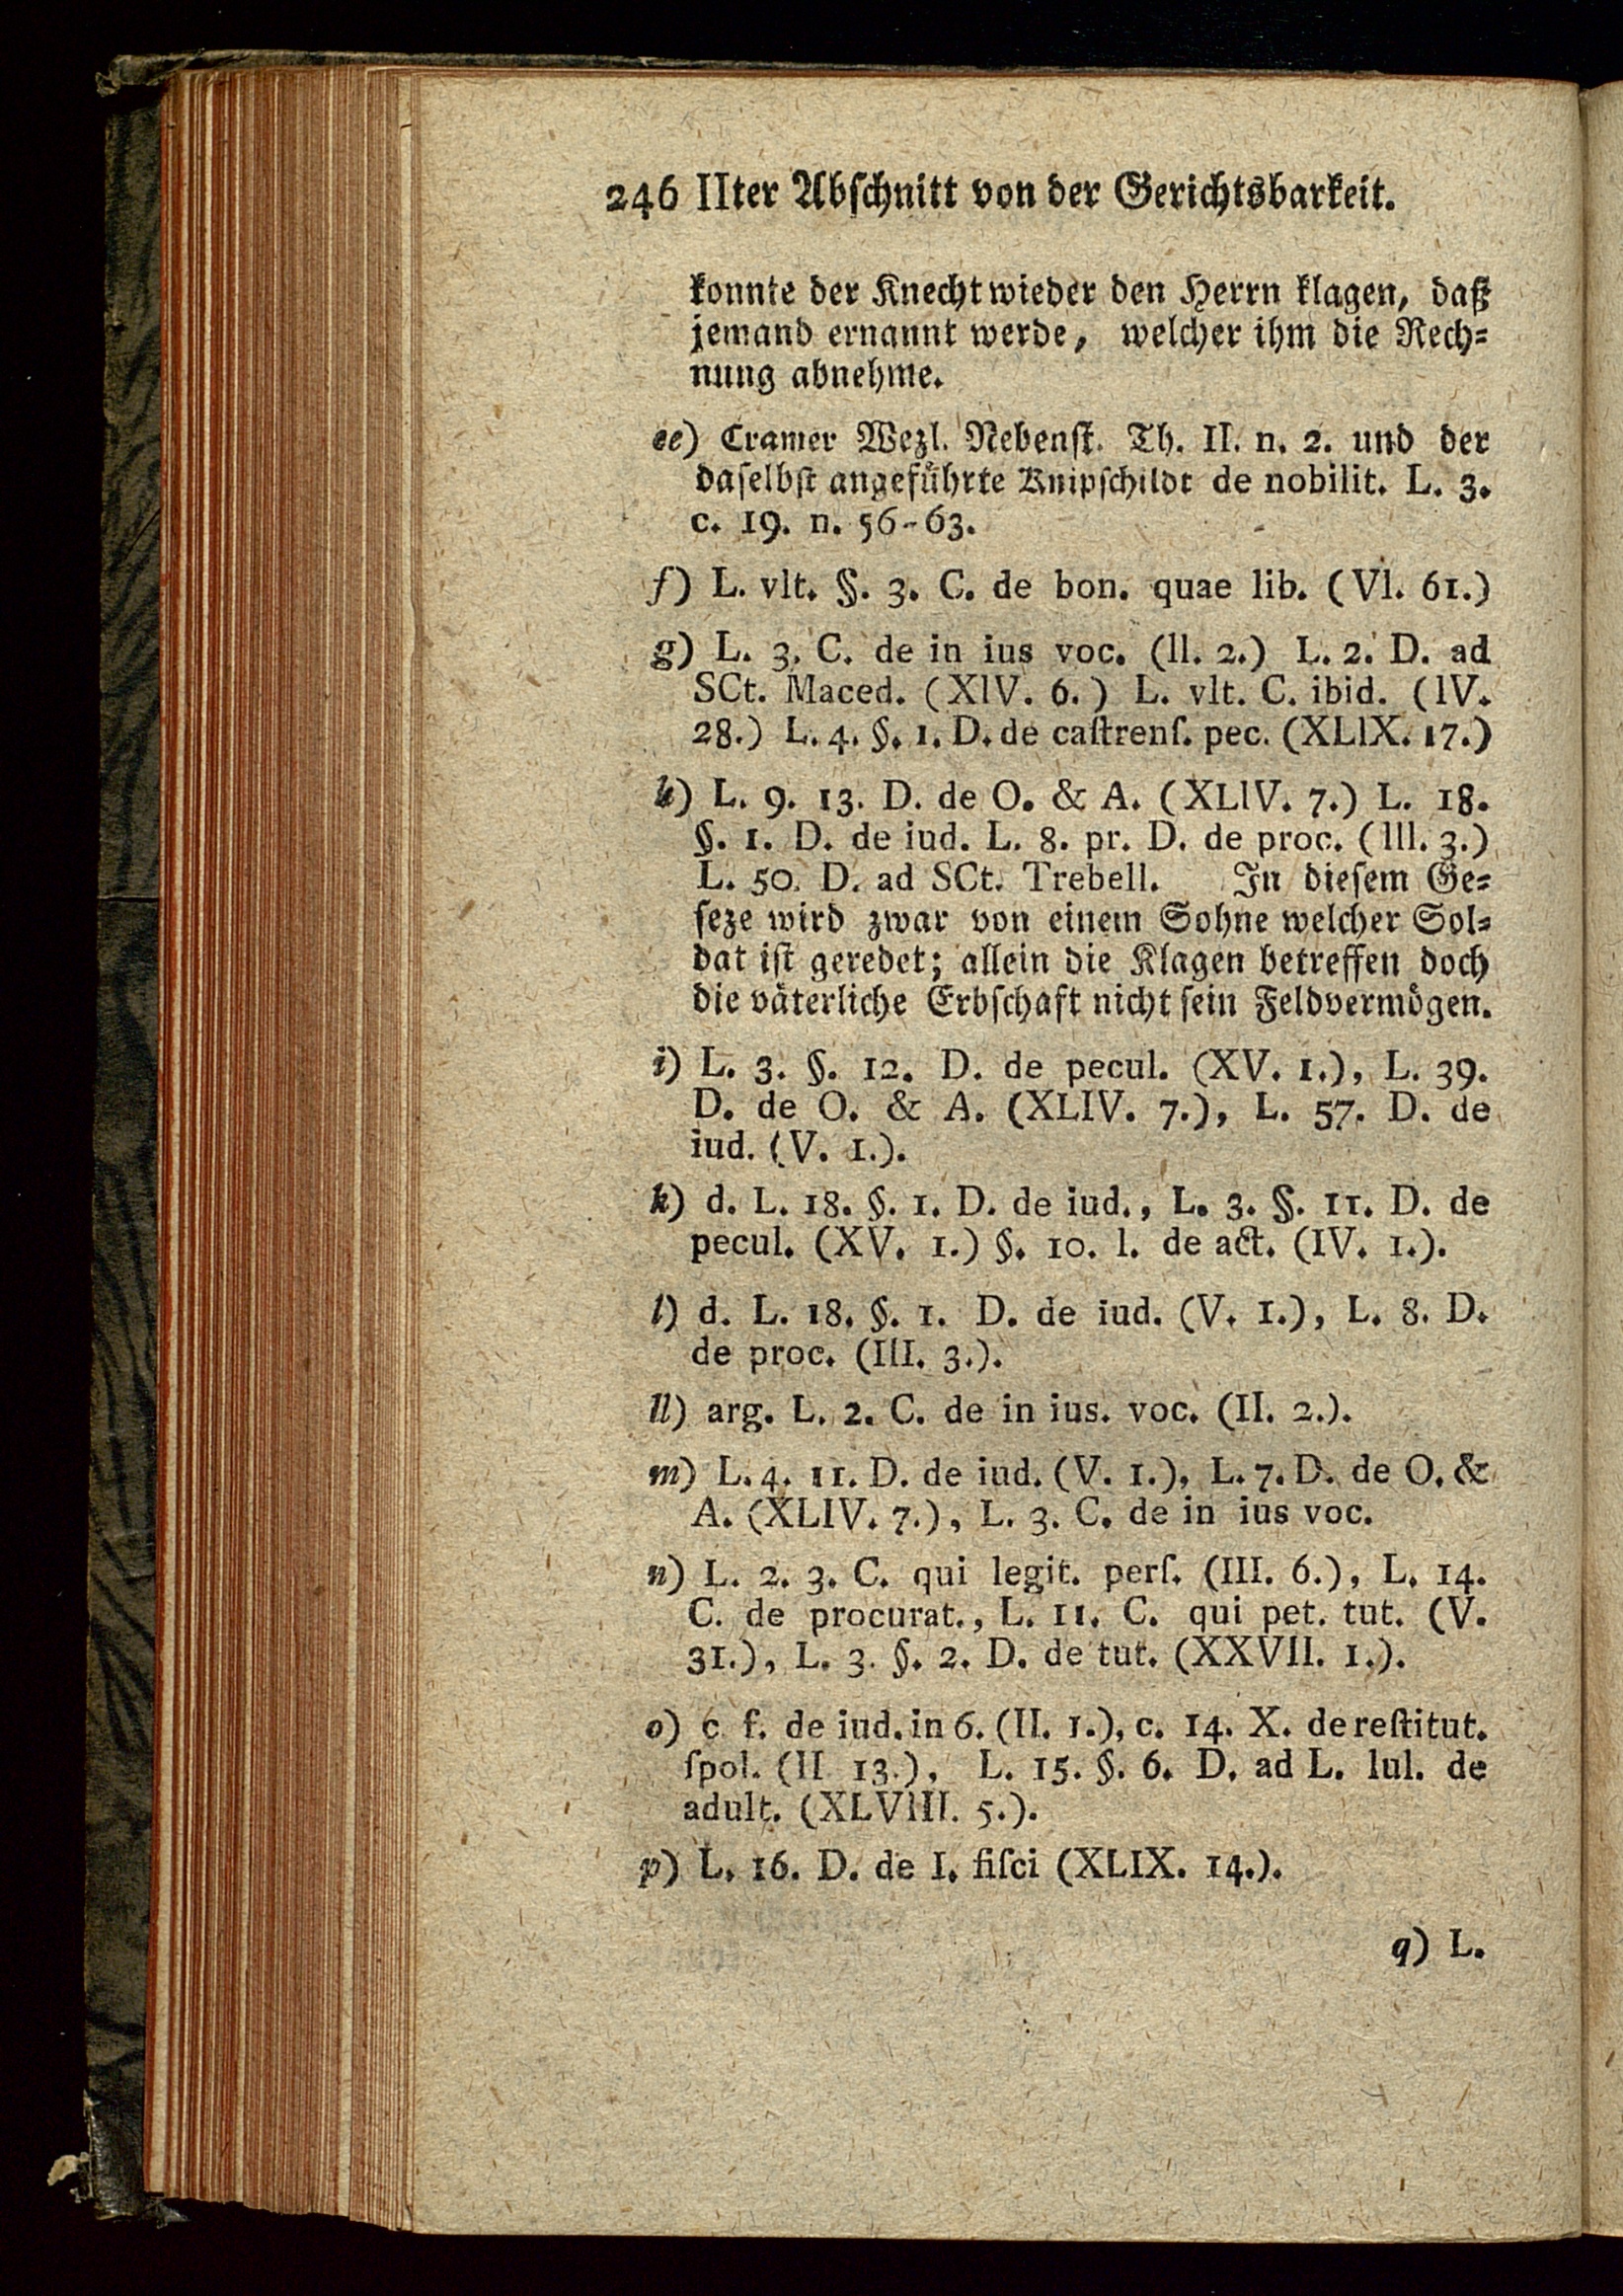 246 IIter Abschnitt von der Gerichtsbarkeit.
konnte der Knecht wieder den Herrn klagen, daß
jemand ernannt werde, welcher ihm die Rech=
nung abnehme.
ee) Cramer Wezl. Nebenst. Th. II. n. 2. und der
daselbst angeführte Knipschildt de nobilit. L. 3.
c. 19. n. 56-63.
f) L. vlt. §. 3. C. de bon. quae lib. (Vl. 61.)
g) L. 3. C. de in ius voc. (ll. 2.) L. 2. D. ad
SCt. Maced. (XlV. 6.) L. vlt. C. ibid. (lV.
28.) L. 4. §. 1. D. de caſtrenſ. pec. (XLlX. 17.)
h) L. 9. 13. D. de O. & A. (XLlV. 7.) L. 18.
§. 1. D. de iud. L. 8. pr. D. de proc. (lll. 3.)
L. 50. D. ad SCt. Trebell. In diesem Ge=
seze wird zwar von einem Sohne welcher Sol=
dat ist geredet; allein die Klagen betreffen doch
die väterliche Erbschaft nicht sein Feldvermögen.
i) L. 3. §. 12. D. de pecul. (XV. 1.), L. 39.
D. de O. & A. (XLIV. 7.), L. 57. D. de
iud. (V. 1.).
k) d. L. 18. §. 1. D. de iud., L. 3. §. 11. D. de
pecul. (XV. 1.) §. 10. l. de act. (IV. 1.).
l) d. L. 18. §. 1. D. de iud. (V. 1.), L. 8. D.
de proc. (III. 3.).
ll) arg. L. 2. C. de in ius. voc. (II. 2.).
m) L. 4. 11. D. de iud. (V. 1.), L. 7. D. de O. &
A. (XLIV. 7.), L. 3. C. de in ius voc.
n) L. 2. 3. C. qui legit. perſ. (III. 6.), L. 14.
C. de procurat., L. 11. C. qui pet. tut. (V.
31.), L. 3. §. 2. D. de tut. (XXVII. 1.).
o) c f. de iud. in 6. (II. 1.), c. 14. X. de reſtitut.
ſpol. (II 13.), L. 15. §. 6. D. ad L. Iul. de
adult. (XLVIII. 5.).
p) L. 16. D. de I. fiſci (XLIX. 14.).
q) L.